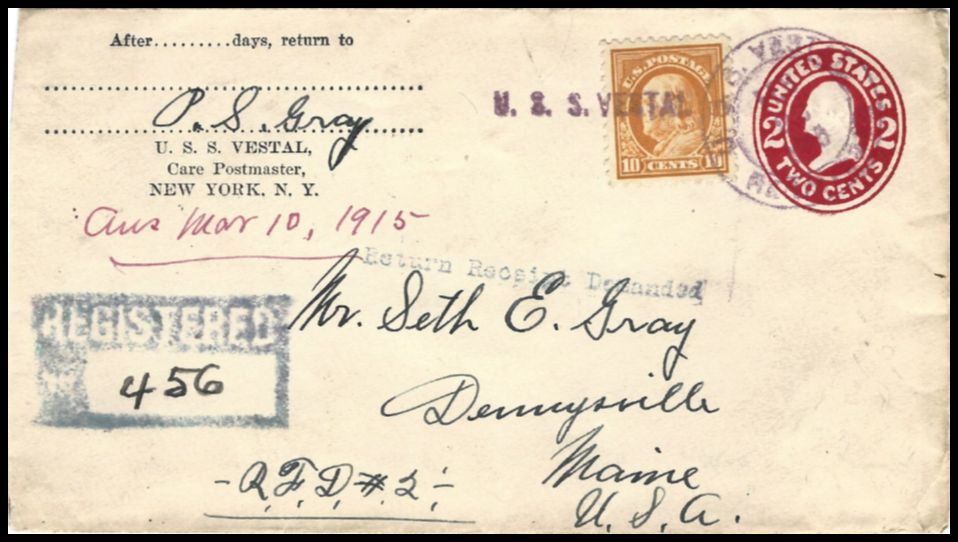 After.........days, return to
P. S. Gray
U. S. S. VESTAL,
Care Postmaster,
NEW YORK, N. Y.
Ans Mar 10, 1915
U. S. S. VESTAL
U.S. POSTAGE
10 CENTS 10
UNITED STATES
2 2
TWO CENTS
Return Receipt Demanded
REGISTERED
No
456
Mr. Seth E. Gray
Dennysville
Maine
U. S. A.
- R. F. D. # 2. -